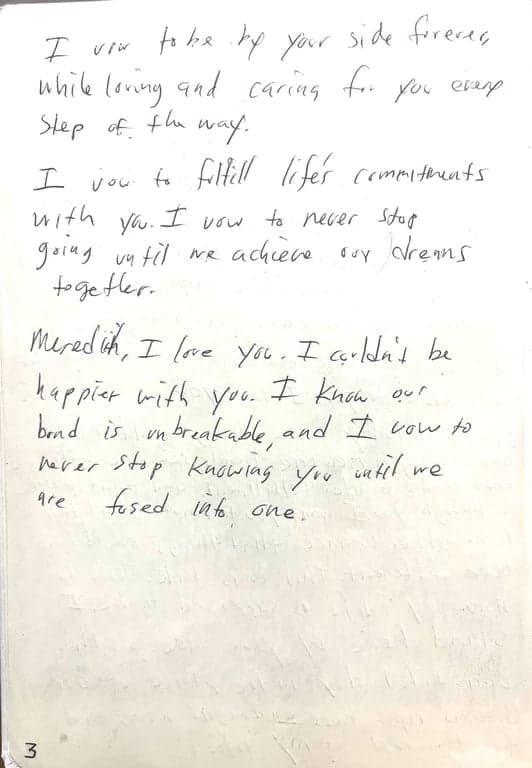 I vow to be by your side forever,
while loving and caring for you every
step of the way.
I vow to fulfill life's commitments
with you. I vow to never stop
going until we achieve our dreams
together.
Meredith, I love you. I couldn't be
happier with you. I know our
bond is unbreakable, and I vow to
never stop knowing you until we
are fused into one.
3